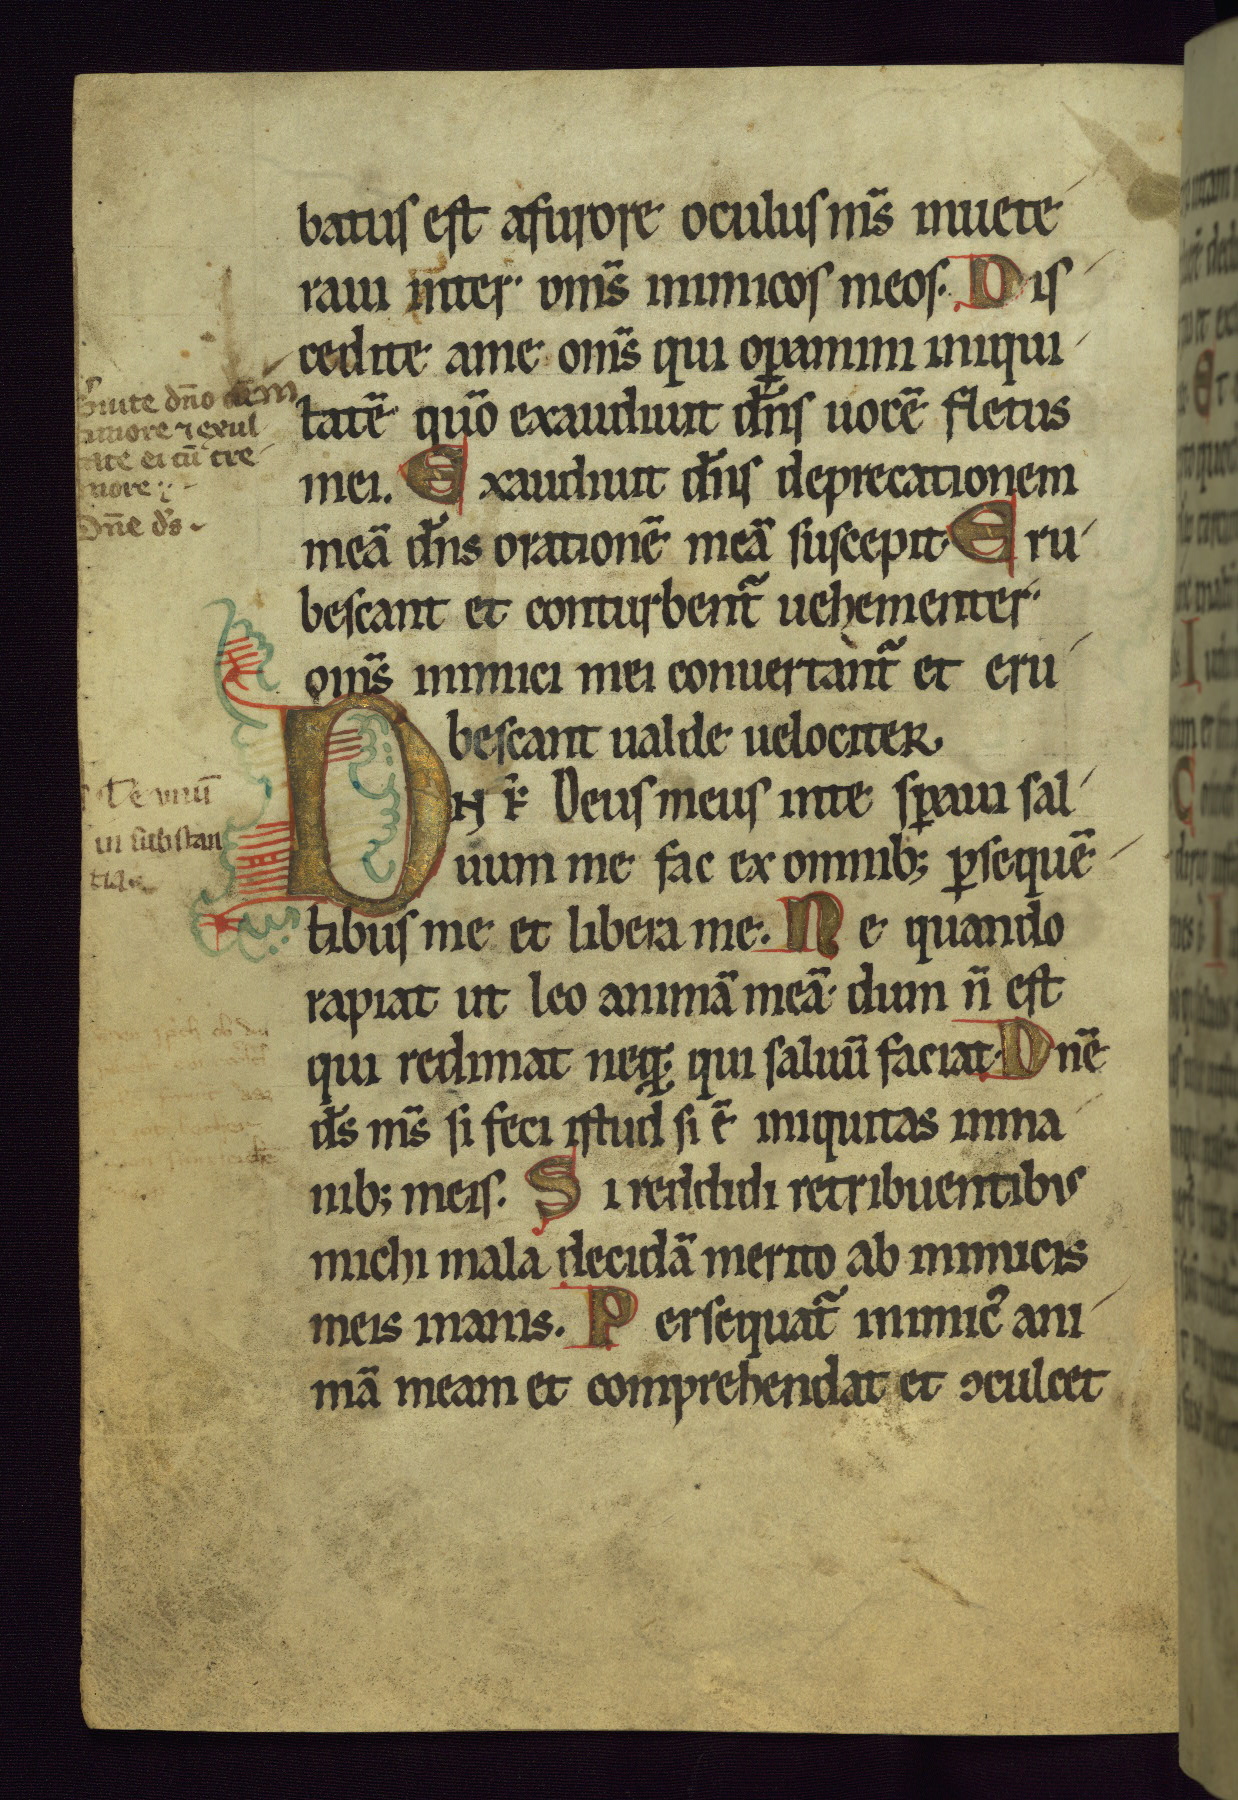 batus est afurore oculus m̄s inuete
raui inter om̄s inimicos meos. Dis
cedite ame om̄s qui op̄amini iniqui
tatē qūo exaudiuit dn̄s uocē fletus
mei. Exaudiuit dn̄s deprecationem
meā dn̄s orationē meā suscepit. Eru
bescant et conturbent̄ uehementer
om̄s inimici mei conuertant̄ et eru
bescant ualde uelociter
DN̄E Deus meus inte sp̄aui sal
uum me fac ex omnib; p̄sequē
tibus me et libera me. Ne quando
rapiat ut leo animā meā dum n̄ est
qui redimat neq; qui saluū faciat. Dnē
ds̄ m̄s si feci istud si ē iniquitas inma
nib; meis. Si reddidi retribuentibus
michi mala decidā merito ab inimicis
meis inanis. Persequat̄ inimic᾽ ani
mā meam et comprehendat et ɔculcet
uite dn̄o
timore ⁊ exul
tate ei cū tre
more
Dn̄e ds̄
Te unū
in substan
tia